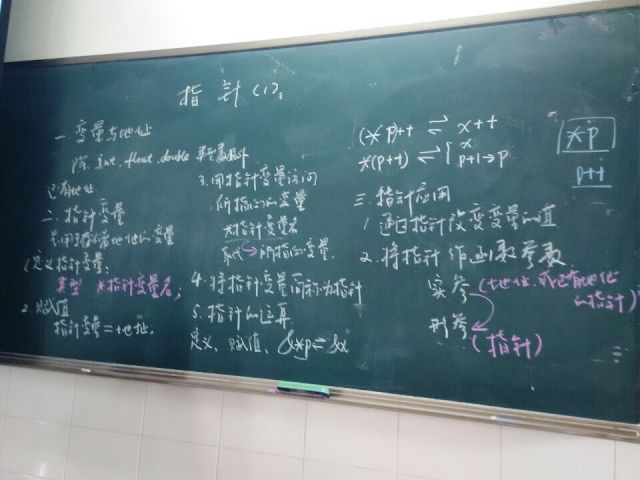 指针(1)。
一 变量与地址
除 int、float、double
已有地址
二、指针变量
是用于存放地址的变量
1.定义指针变量：
类型 *指针变量名；
2.赋值
指针变量=地址。
3.用指针变量访问
所指向的变量
*指针变量名
所指的变量.
4.将指针变量简称为指针
5.指针的运算
定义、赋值、&*p ⇌ &x
(*p)++ ⇌ x++
*(p++) ⇌ x
p+1→p
三.指针应用
1.通过指针改变变量的值
2.将指针作函数参数
实参 (地址,或已有地址
的指针)
形参 (指针)
*p
p++